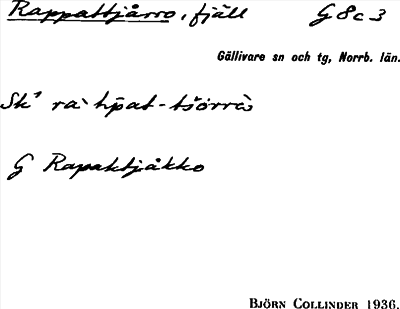 Rappattjårro, fjäll G 8 c 3
Gällivare sn och tg, Norrb. län.
G Rapaktjåkko
BJÖRN COLLINDER 1936.